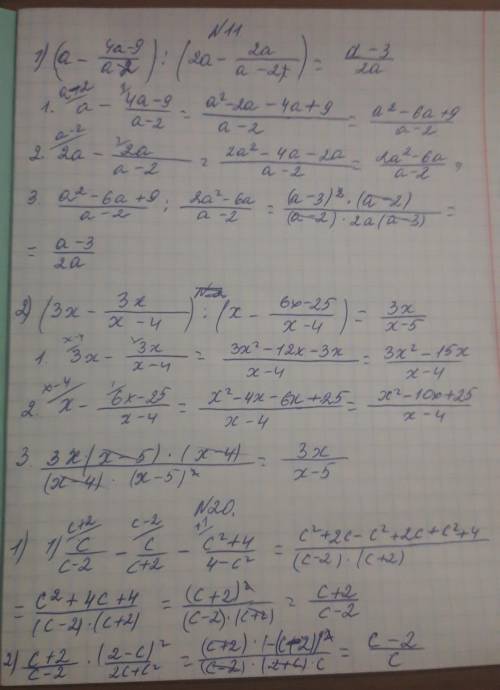 N11
1) (a - (4a-9)/(a-2)) : (2a - 2a/(a-2)) = (a-3)/2a
1. a+2/ a - 1/ (4a-9)/(a-2) = (a²-2a-4a+9)/(a-2) = (a²-6a+9)/(a-2)
2. a-2/ 2a - 1/ 2a/(a-2) = (2a²-4a-2a)/(a-2) = (2a²-6a)/(a-2)
3. (a²-6a+9)/(a-2) : (2a²-6a)/(a-2) = ((a-3)²·(a-2))/((a-2)·2a(a-3)) =
= (a-3)/2a
2) (3x - 3x/(x-4)) : (x - (6x-25)/(x-4)) = 3x/(x-5)
1. x-4/ 3x - 1/ 3x/(x-4) = (3x²-12x-3x)/(x-4) = (3x²-15x)/(x-4)
2. x-4/ x - 1/ (6x-25)/(x-4) = (x²-4x-6x+25)/(x-4) = (x²-10x+25)/(x-4)
3. (3x(x-5)·(x-4))/((x-4)·(x-5)²) = 3x/(x-5)
N20.
1) 1) c+2/ c/(c-2) - c-2/ c/(c+2) - +1/ (c²+4)/(4-c²) = (c²+2c-c²+2c+c²+4)/((c-2)·(c+2))
= (c²+4c+4)/((c-2)·(c+2)) = (c+2)²/((c-2)·(c+2)) = (c+2)/(c-2)
2) (c+2)/(c-2) · (2-c)²/(2c+c²) = = (c-2)/c